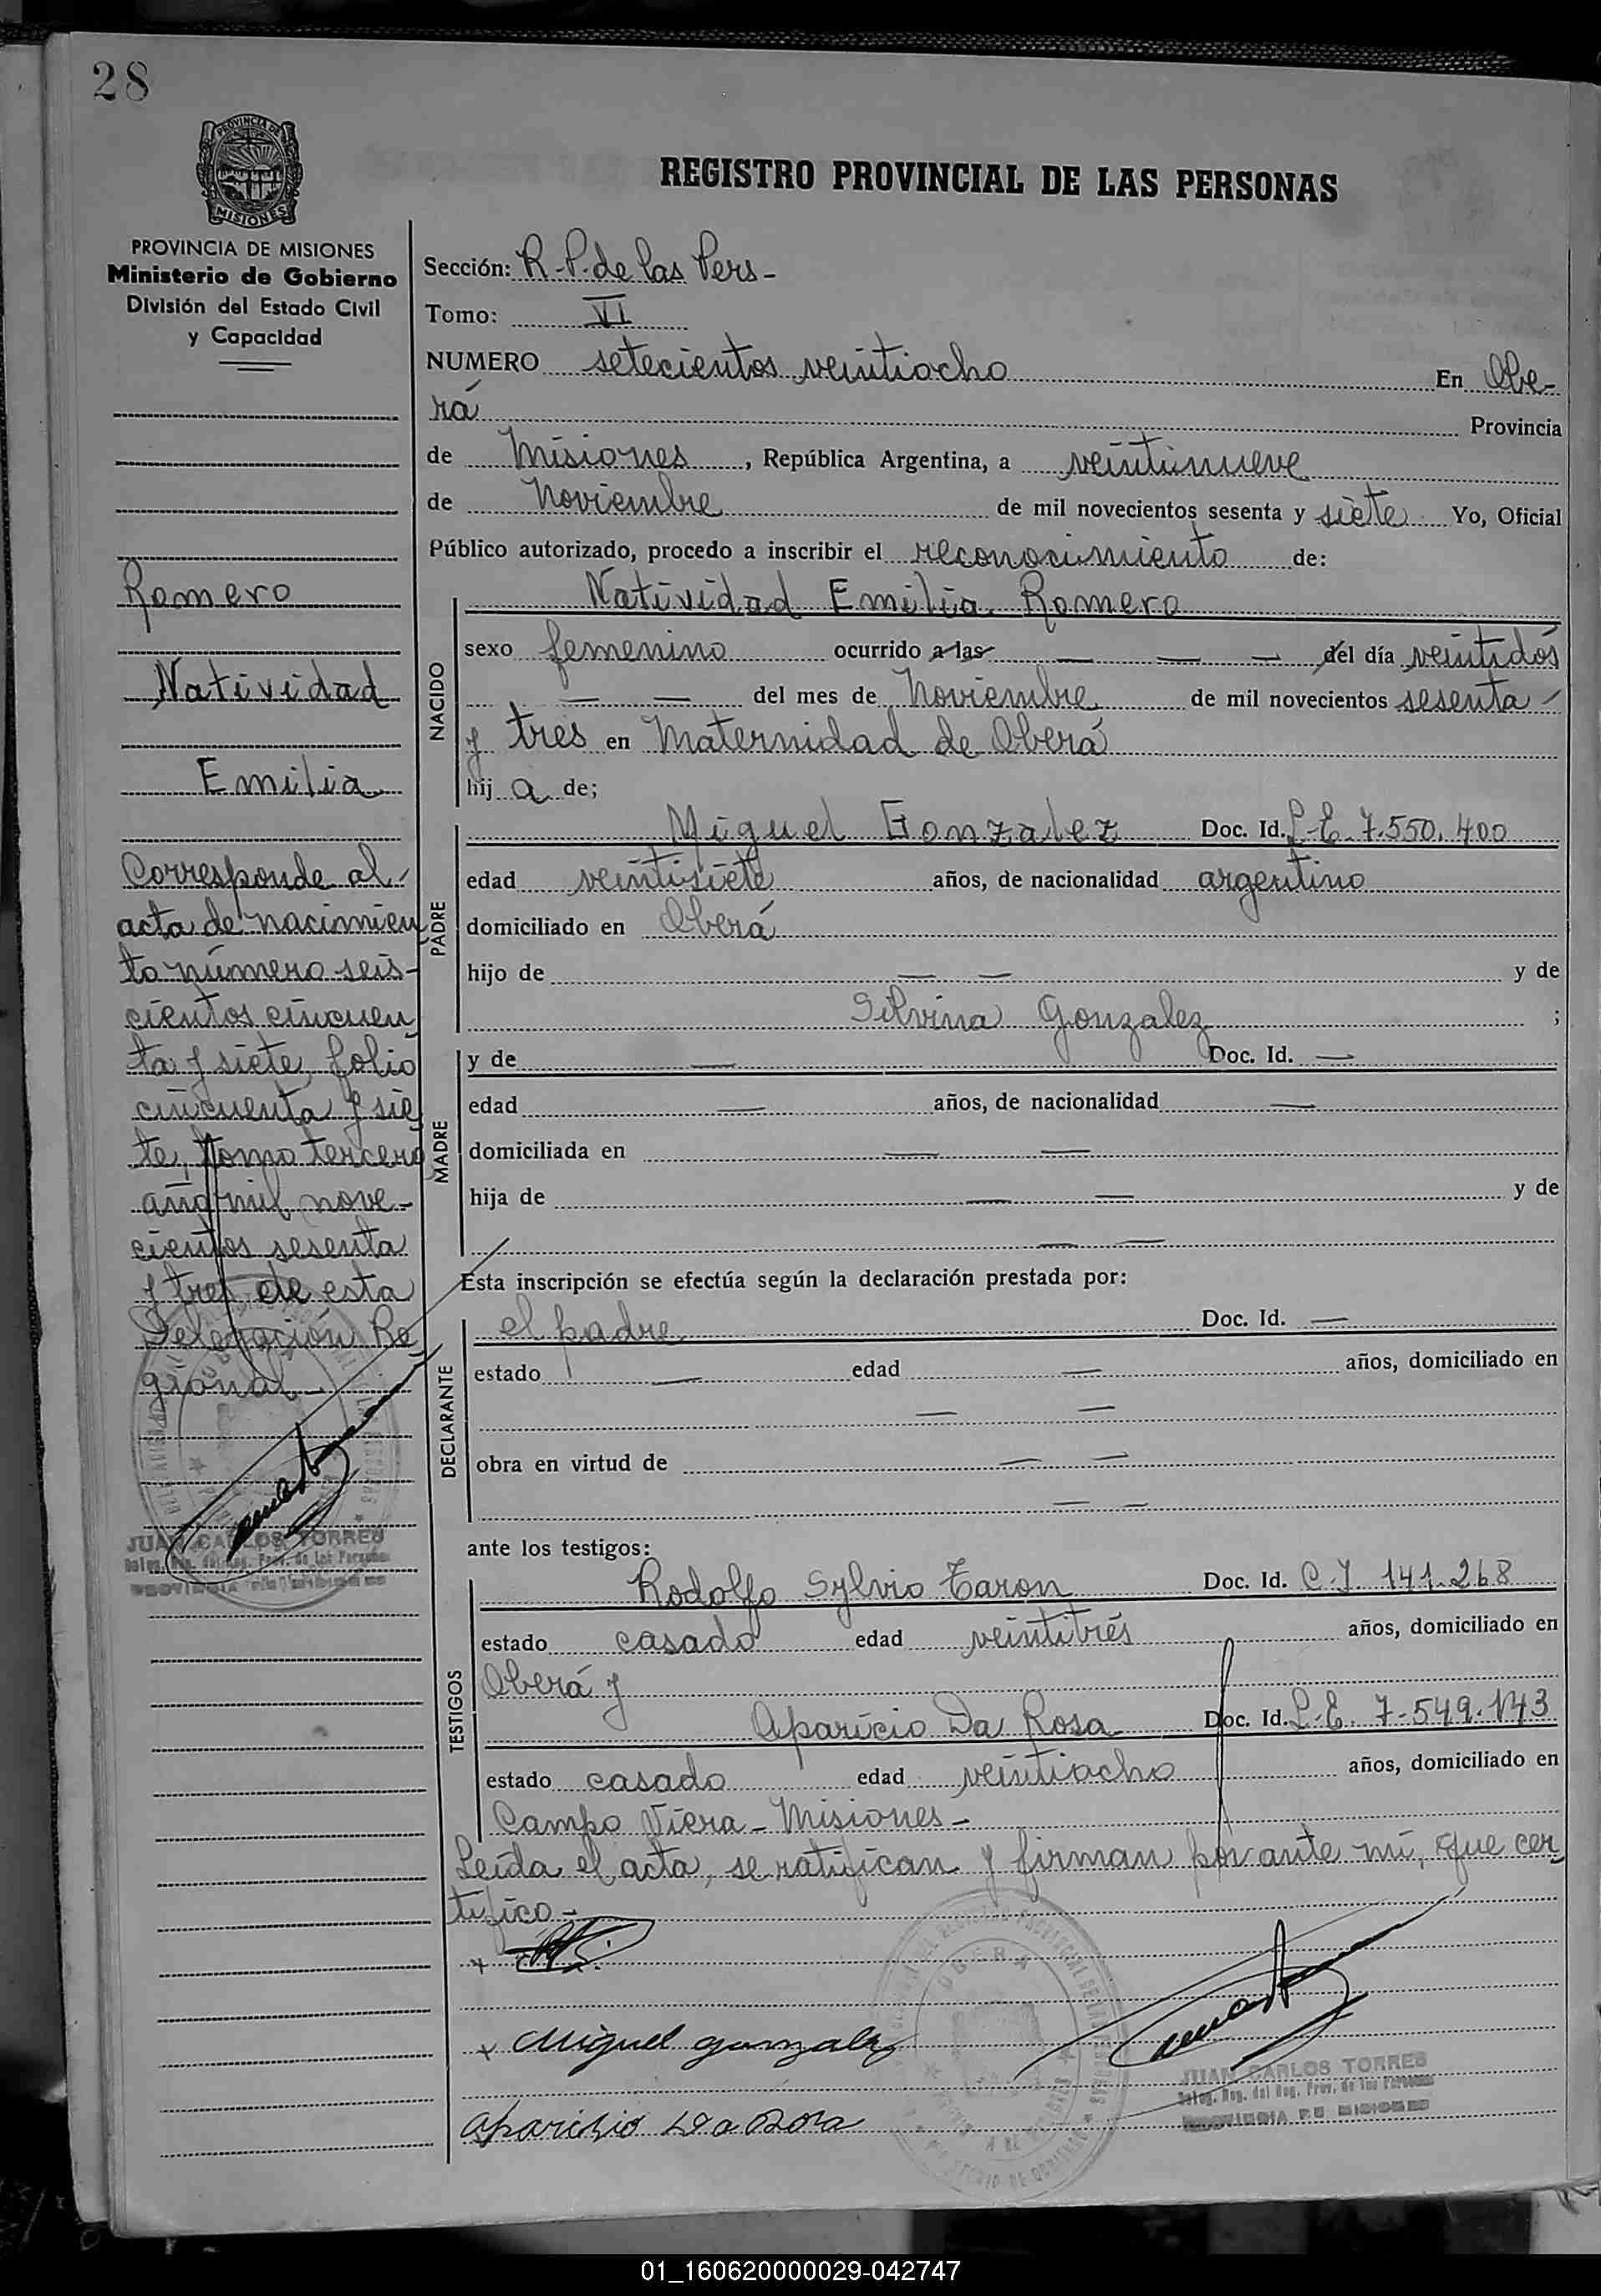 28
PROVINCIA DE
MISIONES
REGISTRO PROVINCIAL DE LAS PERSONAS
PROVINCIA DE MISIONES
Ministerio de Gobierno
División del Estado Civil
y Capacidad
Romero
Natividad
Emilia
Corresponde al
acta de nacimien
to número seis-
cientos cincuen
ta y siete, folio
cincuenta y sie
te, tomo tercero
año mil nove-
cientos sesenta
y tres de esta
Delegación Re
gional.-
JUAN CARLOS TORRES
Deleg. Reg. del Reg. Prov. de las Personas
PROVINCIA DE MISIONES
Sección: R.P. de las Pers-
Tomo: VI
NUMERO setecientos veintiocho En Obe-
rá Provincia
de Misiones, República Argentina, a veintinueve
de Noviembre de mil novecientos sesenta y siete Yo, Oficial
Público autorizado, procedo a inscribir el reconocimiento de:
NACIDO
Natividad Emilia Romero
sexo femenino ocurrido a las — — — del día veintidós
— — del mes de Noviembre de mil novecientos sesenta -
y tres en Maternidad de Oberá
hij a de;
PADRE
Miguel Gonzalez Doc. Id. L.E. 7.550.400
edad veintisiete años, de nacionalidad argentino
domiciliado en Oberá
hijo de — — y de
Silvina Gonzalez ;
MADRE
y de — Doc. Id. —
edad — años, de nacionalidad —
domiciliada en — —
hija de — — y de
— —
Esta inscripción se efectúa según la declaración prestada por:
DECLARANTE
el padre Doc. Id. —
estado — edad — años, domiciliado en
— —
obra en virtud de — —
— —
ante los testigos:
TESTIGOS
Rodolfo Sylvio Taron Doc. Id. C.I 141.268
estado casado edad veintitrés años, domiciliado en
Oberá y
Aparicio Da Rosa Doc. Id. L.E. 7-549.143
estado casado edad veintiocho años, domiciliado en
Campo Viera - Misiones -
Leída el acta, se ratifican y firman por ante mí, que cer
tifico.-
Miguel gonzalez
aparisio Da Rosa
JUAN CARLOS TORRES
Deleg. Reg. del Reg. Prov. de las Personas
PROVINCIA DE MISIONES
01_160620000029-042747